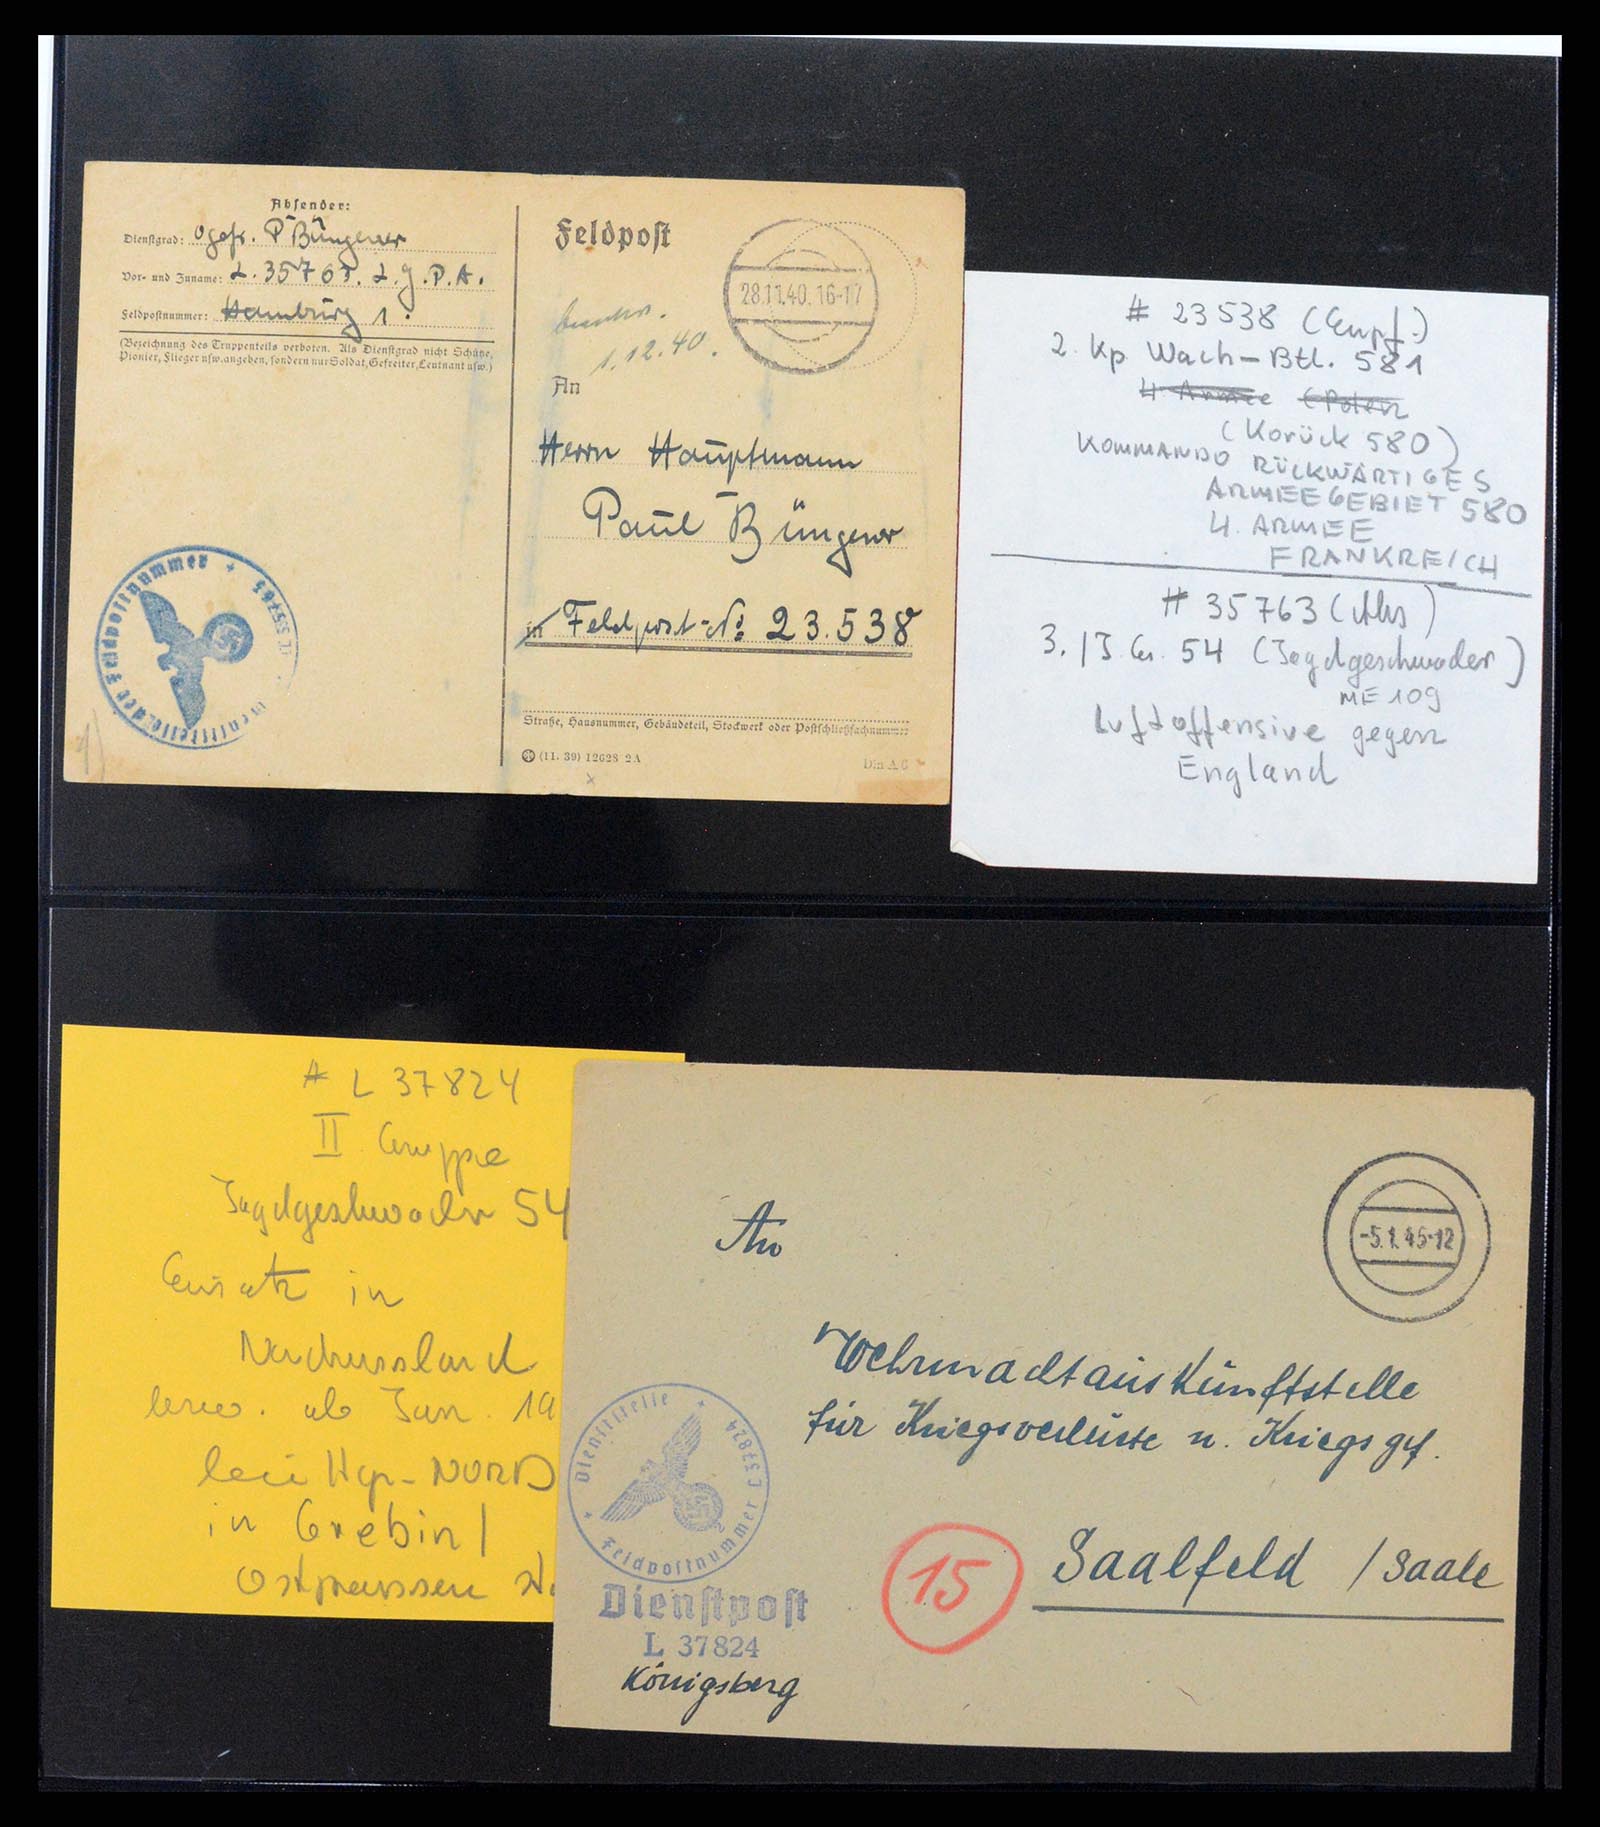 Absender:
Dienstgrad: Ogefr. P. Büngener
Vor- und Zuname: L. 35763. L.g.P.A.
Feldpostnummer: Hamburg 1.
(Bezeichnung des Truppenteils verboten. Als Dienstgrad nicht Schütze,
Pionier, Flieger usw. angeben, sondern nur Soldat, Gefreiter, Leutnant usw.)
Feldpost
28.11.40.16-17
1.12.40.
An
Herrn Hauptmann
Paul Büngener
in Feldpost-No 23.538
Straße, Hausnummer, Gebäudeteil, Stockwerk oder Postschließfachnummer
(11. 39) 12628 2A
Din A 6
Dienststelle der Feldpostnummer + L 35763
# 23538 (Empf.)
2. Kp Wach-Btl. 581
4. Armee (Polen
(Korück 580)
KOMMANDO RÜCKWÄRTIGES
ARMEEGEBIET 580
4. ARMEE
FRANKREICH
# 35763 (Abs)
3. / J. Ges. 54 (Jagdgeschwader)
ME 109
Luftoffensive gegen
England
# L 37824
II Gruppe
Jagdgeschwader 54
Einsatz in
Nordrussland
bezw. ab Jan. 19
bei Hgr-NORD
in Grebin/
Ostpreussen
-5.1.45-12
An
Wehrmachtauskunftstelle
für Kriegsverluste u. Kriegsgef.
15
Saalfeld / Saale
+ Dienststelle + Feldpostnummer L 37824
Dienstpost
L 37824
Königsberg